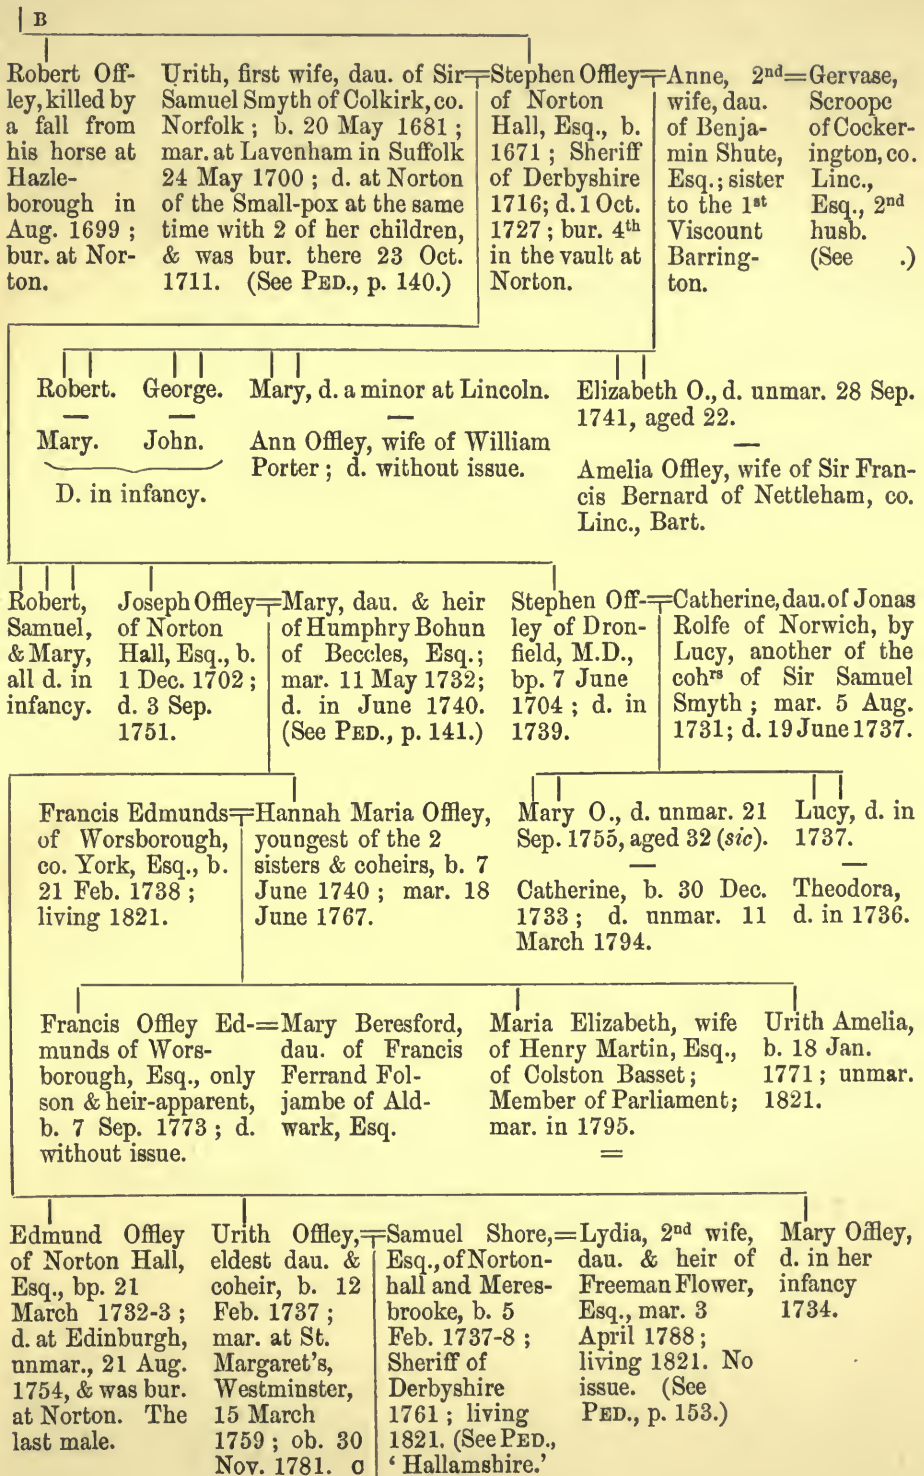 B
Robert Off-
ley, killed by
a fall from
his horse at
Hazle-
borough in
Aug. 1699 ;
bur. at Nor-
ton.
Urith, first wife, dau. of Sir
Samuel Smyth of Colkirk, co.
Norfolk ; b. 20 May 1681 ;
mar. at Lavenham in Suffolk
24 May 1700 ; d. at Norton
of the Small-pox at the same
time with 2 of her children,
& was bur. there 23 Oct.
1711. (See PED., p. 140.)
=Stephen Offley=
of Norton
Hall, Esq., b.
1671 ; Sheriff
of Derbyshire
1716; d. 1 Oct.
1727 ; bur. 4th
in the vault at
Norton.
Anne, 2nd=
wife, dau.
of Benja-
min Shute,
Esq.; sister
to the 1st
Viscount
Barring-
ton.
Gervase,
Scroope
of Cocker-
ington, co.
Linc.,
Esq., 2nd
husb.
(See .)
Robert.
—
Mary.
George.
—
John.
D. in infancy.
Mary, d. a minor at Lincoln.
—
Ann Offley, wife of William
Porter ; d. without issue.
Elizabeth O., d. unmar. 28 Sep.
1741, aged 22.
—
Amelia Offley, wife of Sir Fran-
cis Bernard of Nettleham, co.
Linc., Bart.
Robert,
Samuel,
& Mary,
all d. in
infancy.
Joseph Offley=
of Norton
Hall, Esq., b.
1 Dec. 1702 ;
d. 3 Sep.
1751.
Mary, dau. & heir
of Humphry Bohun
of Beccles, Esq.;
mar. 11 May 1732;
d. in June 1740.
(See PED., p. 141.)
Stephen Off-=
ley of Dron-
field, M.D.,
bp. 7 June
1704 ; d. in
1739.
Catherine, dau. of Jonas
Rolfe of Norwich, by
Lucy, another of the
cohrs of Sir Samuel
Smyth ; mar. 5 Aug.
1731; d. 19 June 1737.
Francis Edmunds=
of Worsborough,
co. York, Esq., b.
21 Feb. 1738 ;
living 1821.
Hannah Maria Offley,
youngest of the 2
sisters & coheirs, b. 7
June 1740 ; mar. 18
June 1767.
Mary O., d. unmar. 21
Sep. 1755, aged 32 (sic).
—
Catherine, b. 30 Dec.
1733 ; d. unmar. 11
March 1794.
Lucy, d. in
1737.
—
Theodora,
d. in 1736.
Francis Offley Ed-=
munds of Wors-
borough, Esq., only
son & heir-apparent,
b. 7 Sep. 1773 ; d.
without issue.
Mary Beresford,
dau. of Francis
Ferrand Fol-
jambe of Ald-
wark, Esq.
Maria Elizabeth, wife
of Henry Martin, Esq.,
of Colston Basset;
Member of Parliament;
mar. in 1795.
=
Urith Amelia,
b. 18 Jan.
1771 ; unmar.
1821.
Edmund Offley
of Norton Hall,
Esq., bp. 21
March 1732-3 ;
d. at Edinburgh,
unmar., 21 Aug.
1754, & was bur.
at Norton. The
last male.
Urith Offley,=
eldest dau. &
coheir, b. 12
Feb. 1737 ;
mar. at St.
Margaret's,
Westminster,
15 March
1759 ; ob. 30
Nov. 1781. C
Samuel Shore,=
Esq., of Norton-
hall and Meres-
brooke, b. 5
Feb. 1737-8 ;
Sheriff of
Derbyshire
1761 ; living
1821. (See PED.,
‘ Hallamshire.’
Lydia, 2nd wife,
dau. & heir of
Freeman Flower,
Esq., mar. 3
April 1788 ;
living 1821. No
issue. (See
PED., p. 153.)
Mary Offley,
d. in her
infancy
1734.